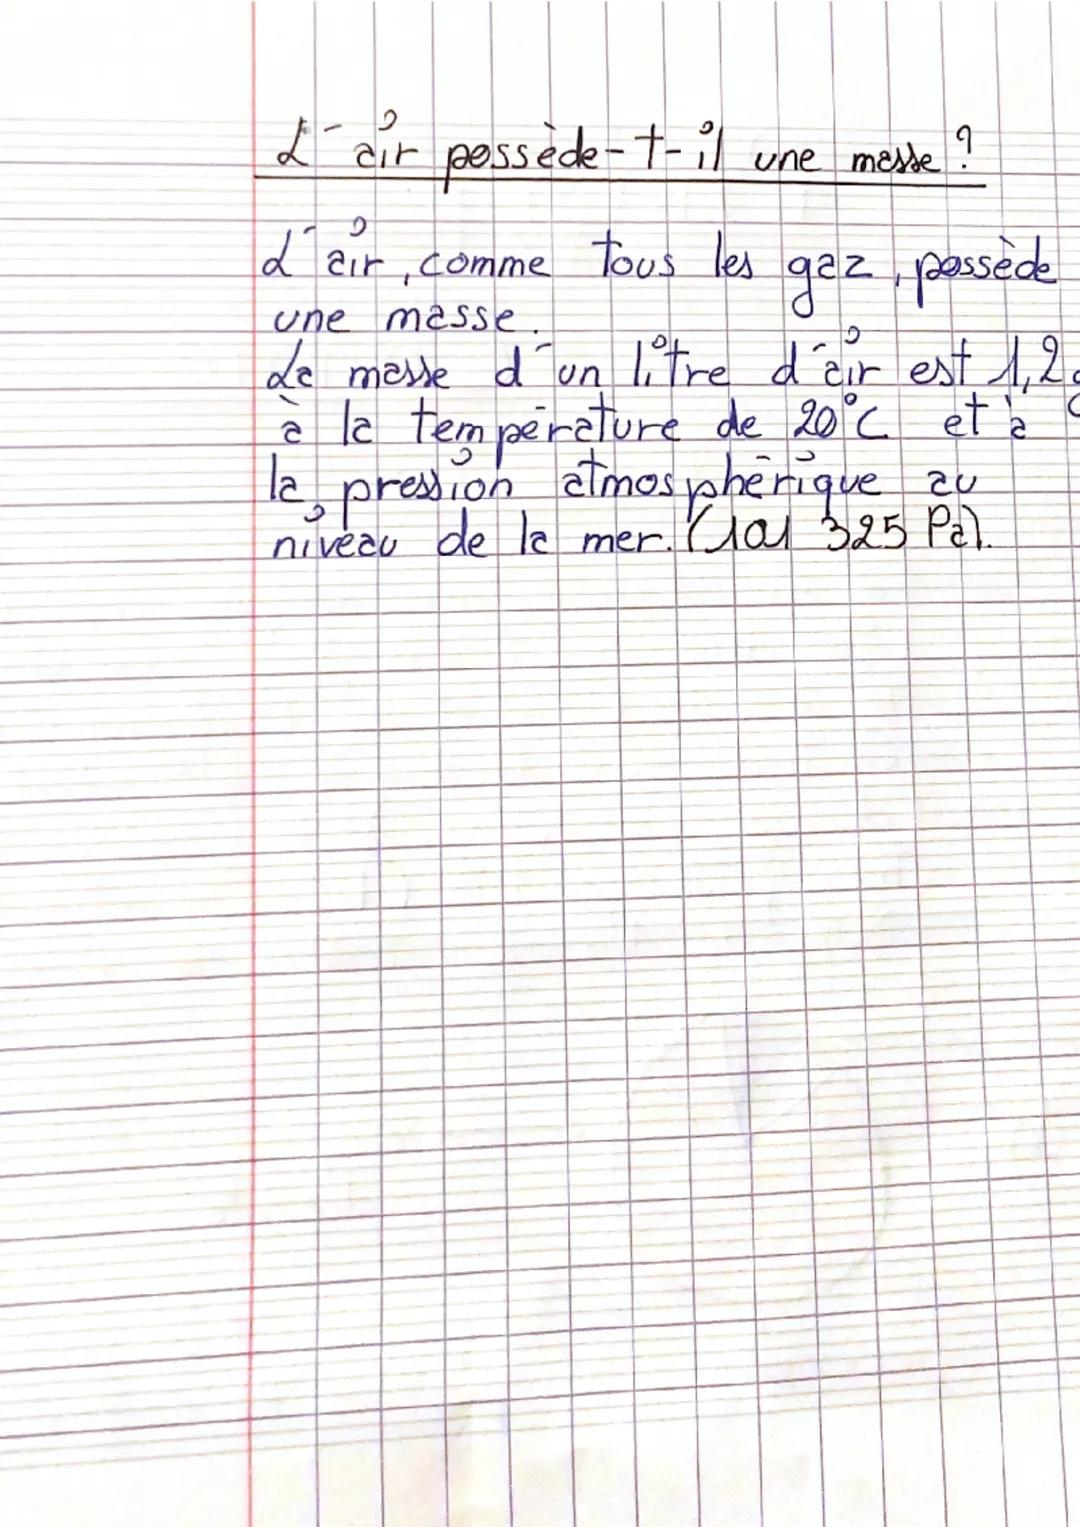 L'air possède-t-il une masse ?
L'air, comme tous les gaz, possède
une masse.
La masse d'un litre d'air est 1,2g
à la température de 20°C et à
la pression atmosphérique au
niveau de la mer. (101 325 Pa).